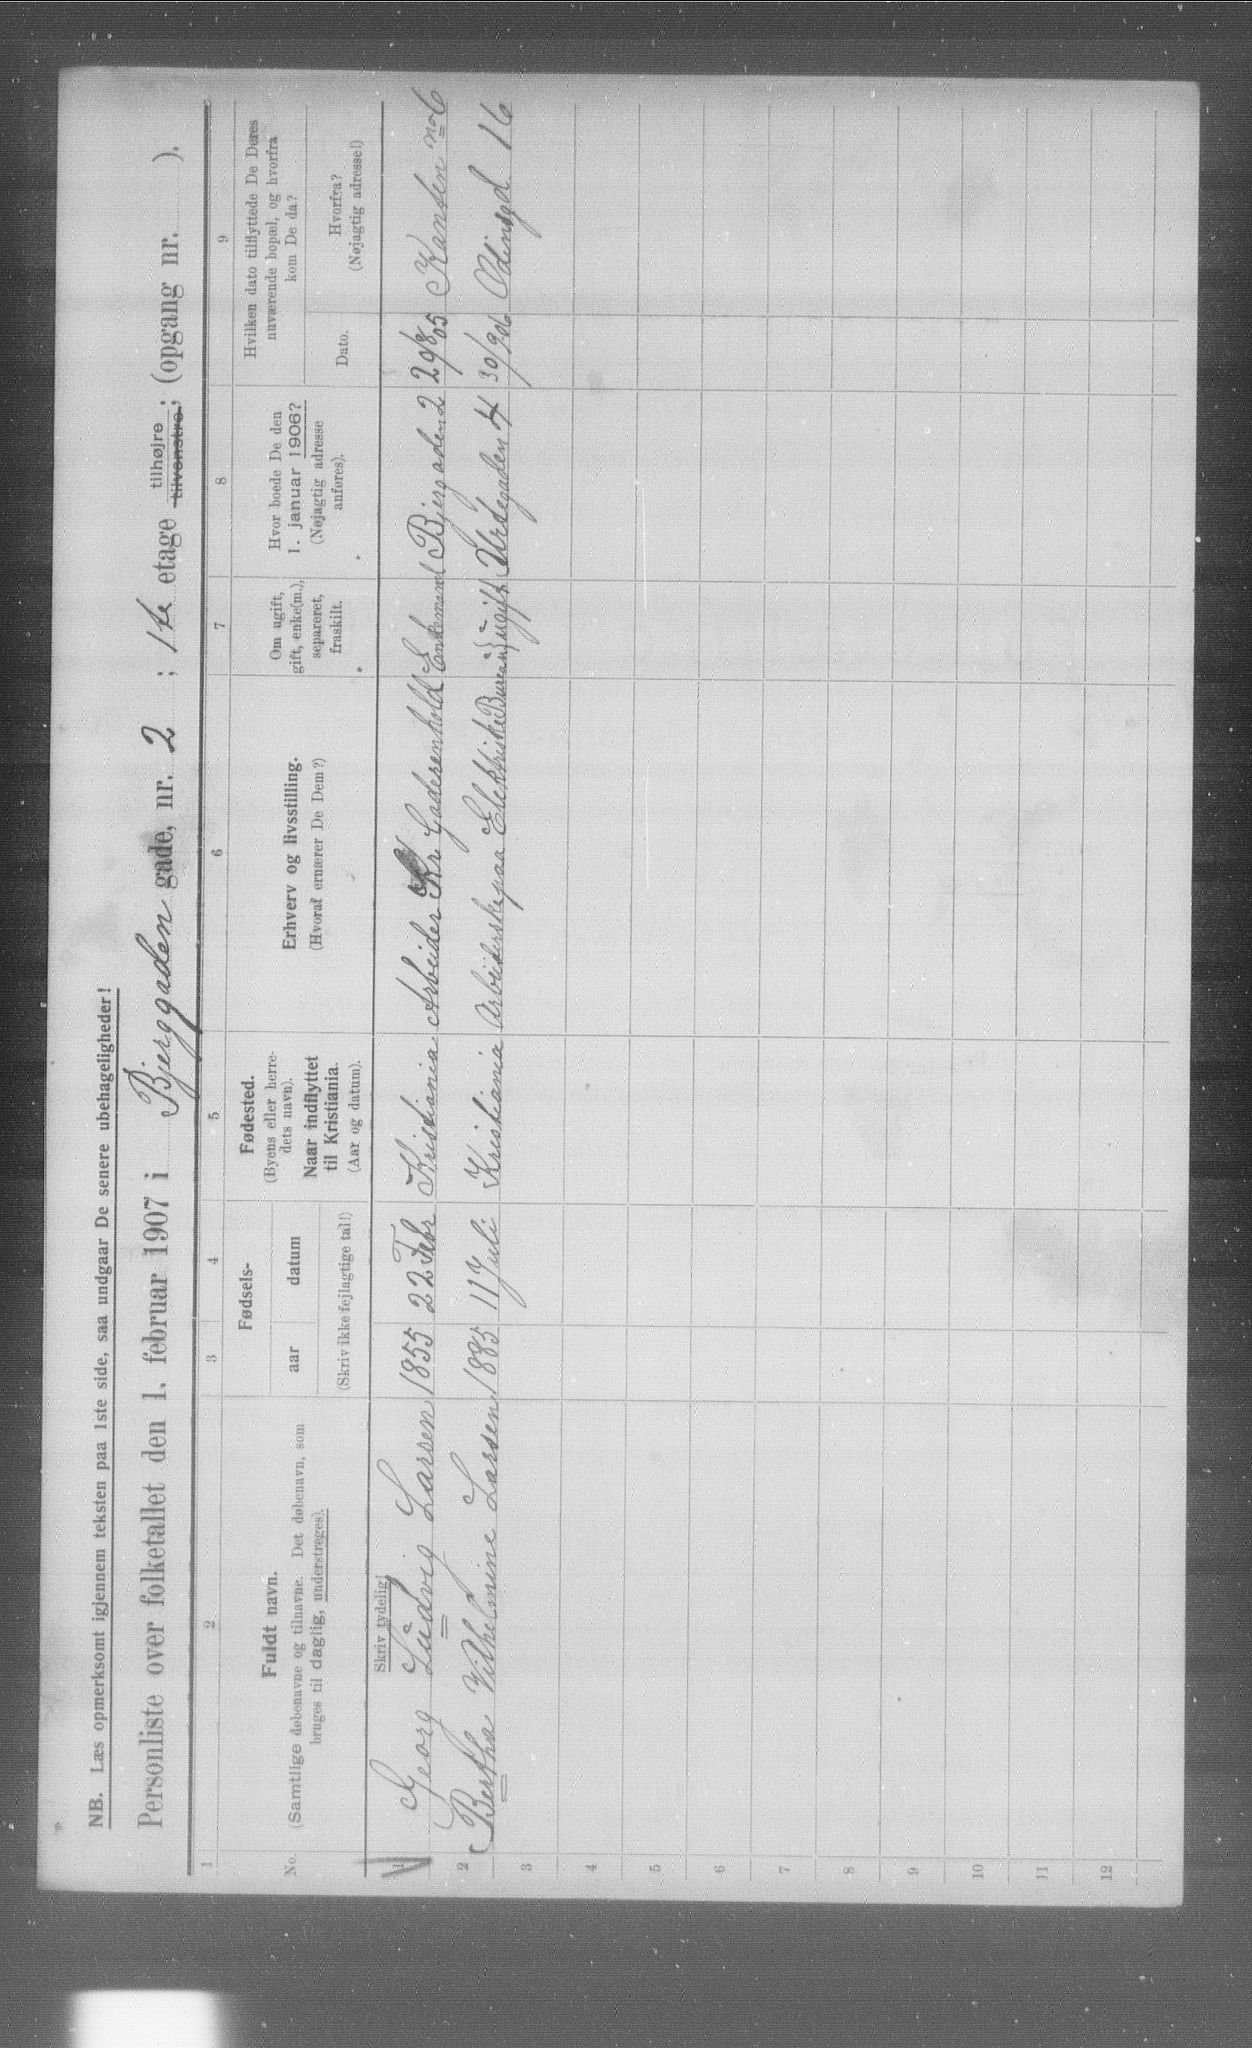 NB. Læs opmerksomt igjennem teksten paa 1ste side, saa undgaar De senere ubehageligheder!
Personliste over folketallet den 1. februar 1907 i Bjerggaden gade, nr. 2 ; 1te etage tilhøjre tilvenstre; (opgang nr. ).
1 2 3 4 5 6 7 8 9
No.
Fuldt navn.
(Samtlige døbenavne og tilnavne. Det døbenavn, som
bruges til daglig, understreges).
Fødsels-
aar datum
(Skriv ikke fejlagtige tal!)
Fødested.
(Byens eller herre-
dets navn).
Naar indflyttet
til Kristiania.
(Aar og datum).
Erhverv og livsstilling.
(Hvoraf ernærer De Dem?)
Om ugift,
gift, enke(m.),
separeret,
fraskilt.
Hvor boede De den
1. januar 1906?
(Nøjagtig adresse
anføres).
Hvilken dato tilflyttede De Deres
nuværende bopæl, og hvorfra
kom De da?
Dato.
Hvorfra?
(Nøjagtig adresse!)
Skriv tydelig!
1 Georg Ludvig Larsen 1855 22 Febr Kristiania Arbeider Kr Gaderenhold Enkemand Bjergaden 2 29/8 05 Kanten no 6
2 Bertha Vilhelmine Larsen 1885 11 Juli Kristiania Arbeiderske paa Elektriske Bureau ugift Urdegaden 4 30/9 06 Odinsgd. 16
3
4
5
6
7
8
9
10
11
12